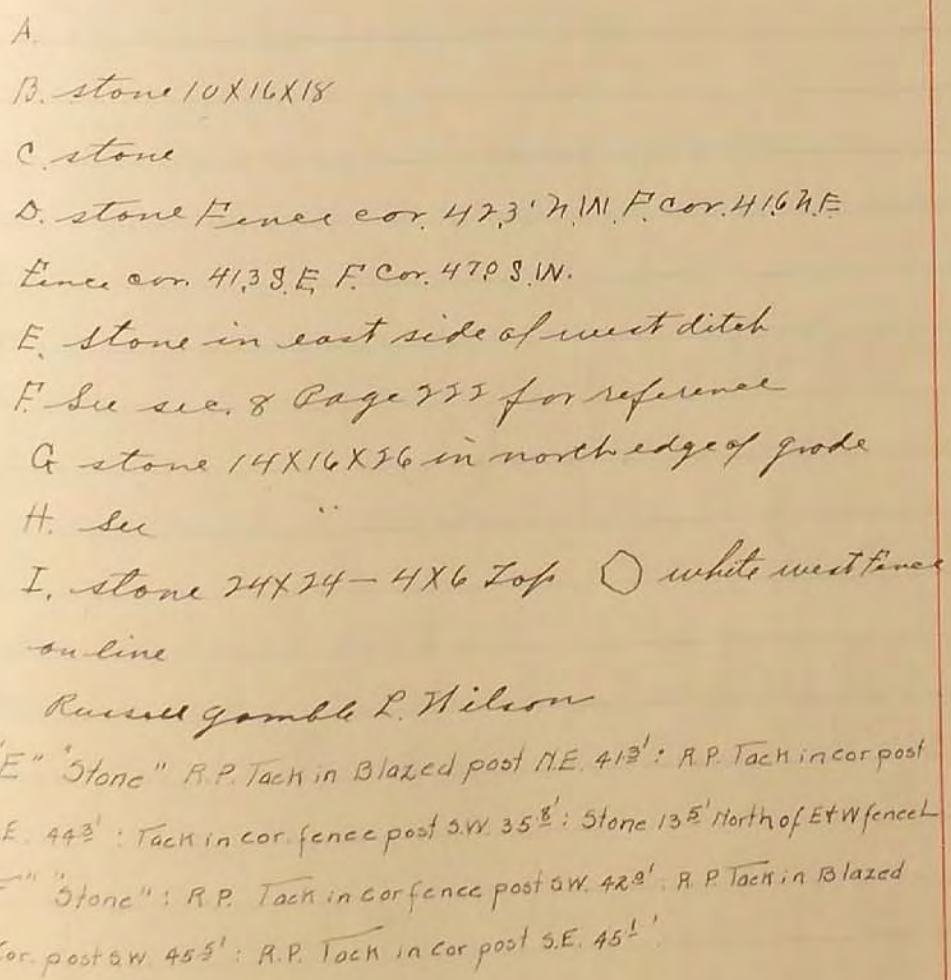 A.
B. stone 10X16X18
C. stone
D. stone Fence cor. 42.3' N.W. F. cor. 41.6 N.E
Fence cor. 41.3 S.E, F. Cor. 47.0 S.W.
E. stone in east side of west ditch
F. See sec. 8 Page 222 for reference
G stone 14X16X26 in north edge of grade
H. See
I. stone 24X24-4X6 Top white west Fence
on line
Russell Gamble L. Wilson
"E" "Stone" R.P. Tack in Blazed post N.E. 41 3': R.P. Tack in cor post
E. 44 3': Tack in cor. fence post S.W. 35 8': Stone 13 5' North of E+W fence L
" "Stone": R.P. Tack in cor fence post S.W. R.P. Tack in Blazed
Cor. post S.W. 45 5': R.P. Tack in Cor post S.E. 45 1'.